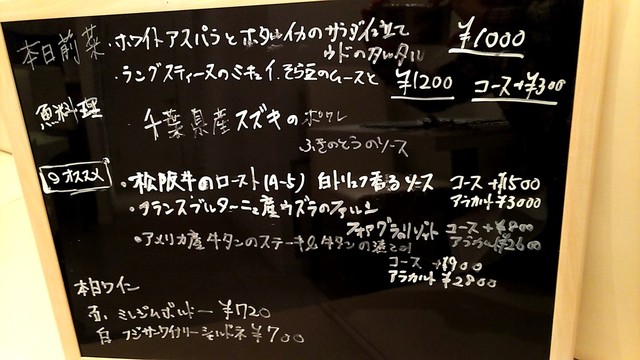 本日前菜・ホワイトアスパラとホタルイカのサラダ仕立て
ウドのタルタル ¥1000
・ラングスティーヌのミキュイ そら豆のムースと ¥1200 コース+¥300
魚料理 千葉県産スズキのポワレ
ふきのとうのソース
オススメ
・松阪牛のロースト(A-5) 白トリュフ香るソース コース +¥1500
アラカルト ¥3000
・フランスブルターニュ産ウズラのファルシ
フォアグラのリゾット コース +¥800
アラカルト ¥2600
・アメリカ産牛タンのステーキ&牛タンの
コース +¥900
アラカルト ¥2800
本日ワイン
赤. ミレジムボルドー ¥720
白 フジサンワイナリーシャルドネ ¥700